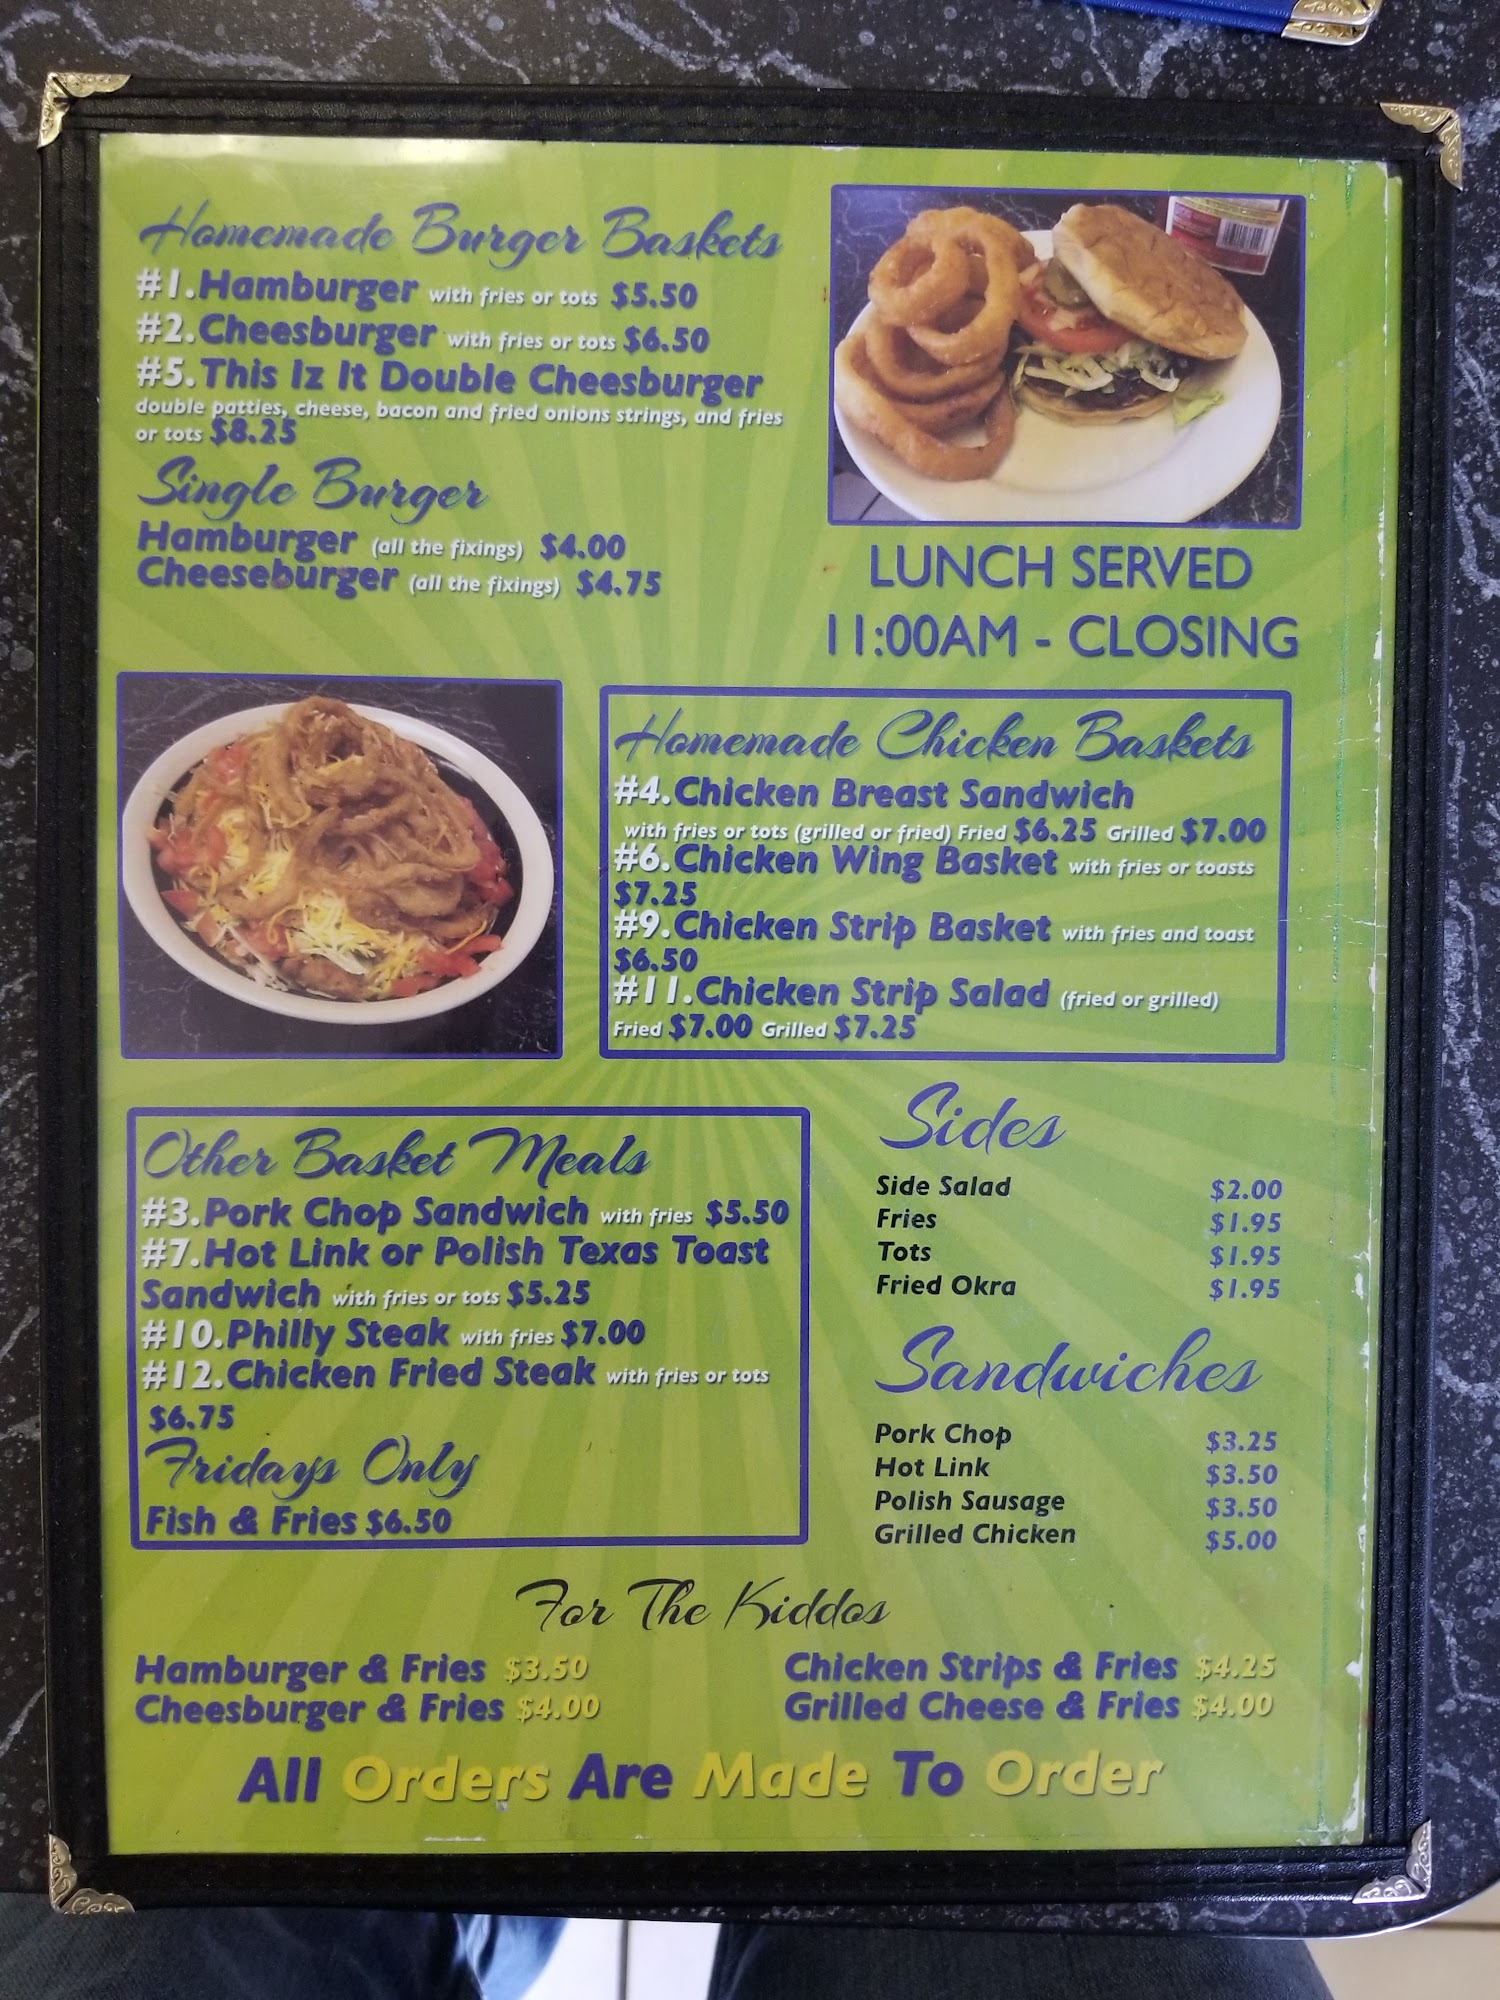 Homemade Burger Baskets
#1.Hamburger with fries or tots $5.50
#2.Cheesburger with fries or tots $6.50
#5.This Iz It Double Cheesburger
double patties, cheese, bacon and fried onions strings, and fries
or tots $8.25
Single Burger
Hamburger (all the fixings) $4.00
Cheeseburger (all the fixings) $4.75
LUNCH SERVED
11:00AM - CLOSING
Homemade Chicken Baskets
#4.Chicken Breast Sandwich
with fries or tots (grilled or fried) Fried $6.25 Grilled $7.00
#6.Chicken Wing Basket with fries or toasts
$7.25
#9.Chicken Strip Basket with fries and toast
$6.50
#11.Chicken Strip Salad (fried or grilled)
Fried $7.00 Grilled $7.25
Other Basket Meals
#3.Pork Chop Sandwich with fries $5.50
#7.Hot Link or Polish Texas Toast
Sandwich with fries or tots $5.25
#10.Philly Steak with fries $7.00
#12.Chicken Fried Steak with fries or tots
$6.75
Fridays Only
Fish & Fries $6.50
Sides
Side Salad $2.00
Fries $1.95
Tots $1.95
Fried Okra $1.95
Sandwiches
Pork Chop $3.25
Hot Link $3.50
Polish Sausage $3.50
Grilled Chicken $5.00
For The Kiddos
Hamburger & Fries $3.50
Cheesburger & Fries $4.00
Chicken Strips & Fries $4.25
Grilled Cheese & Fries $4.00
All Orders Are Made To Order